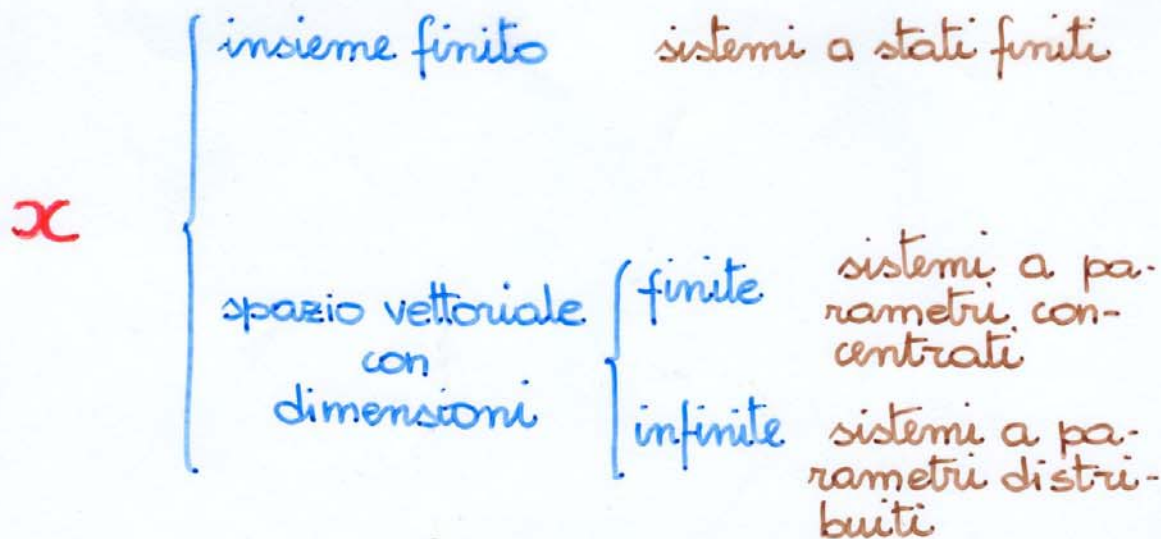 insieme finito sistemi a stati finiti
x
spazio vettoriale
con
dimensioni
finite
sistemi a pa-
rametri con-
centrati
infinite
sistemi a pa-
rametri distri-
buiti